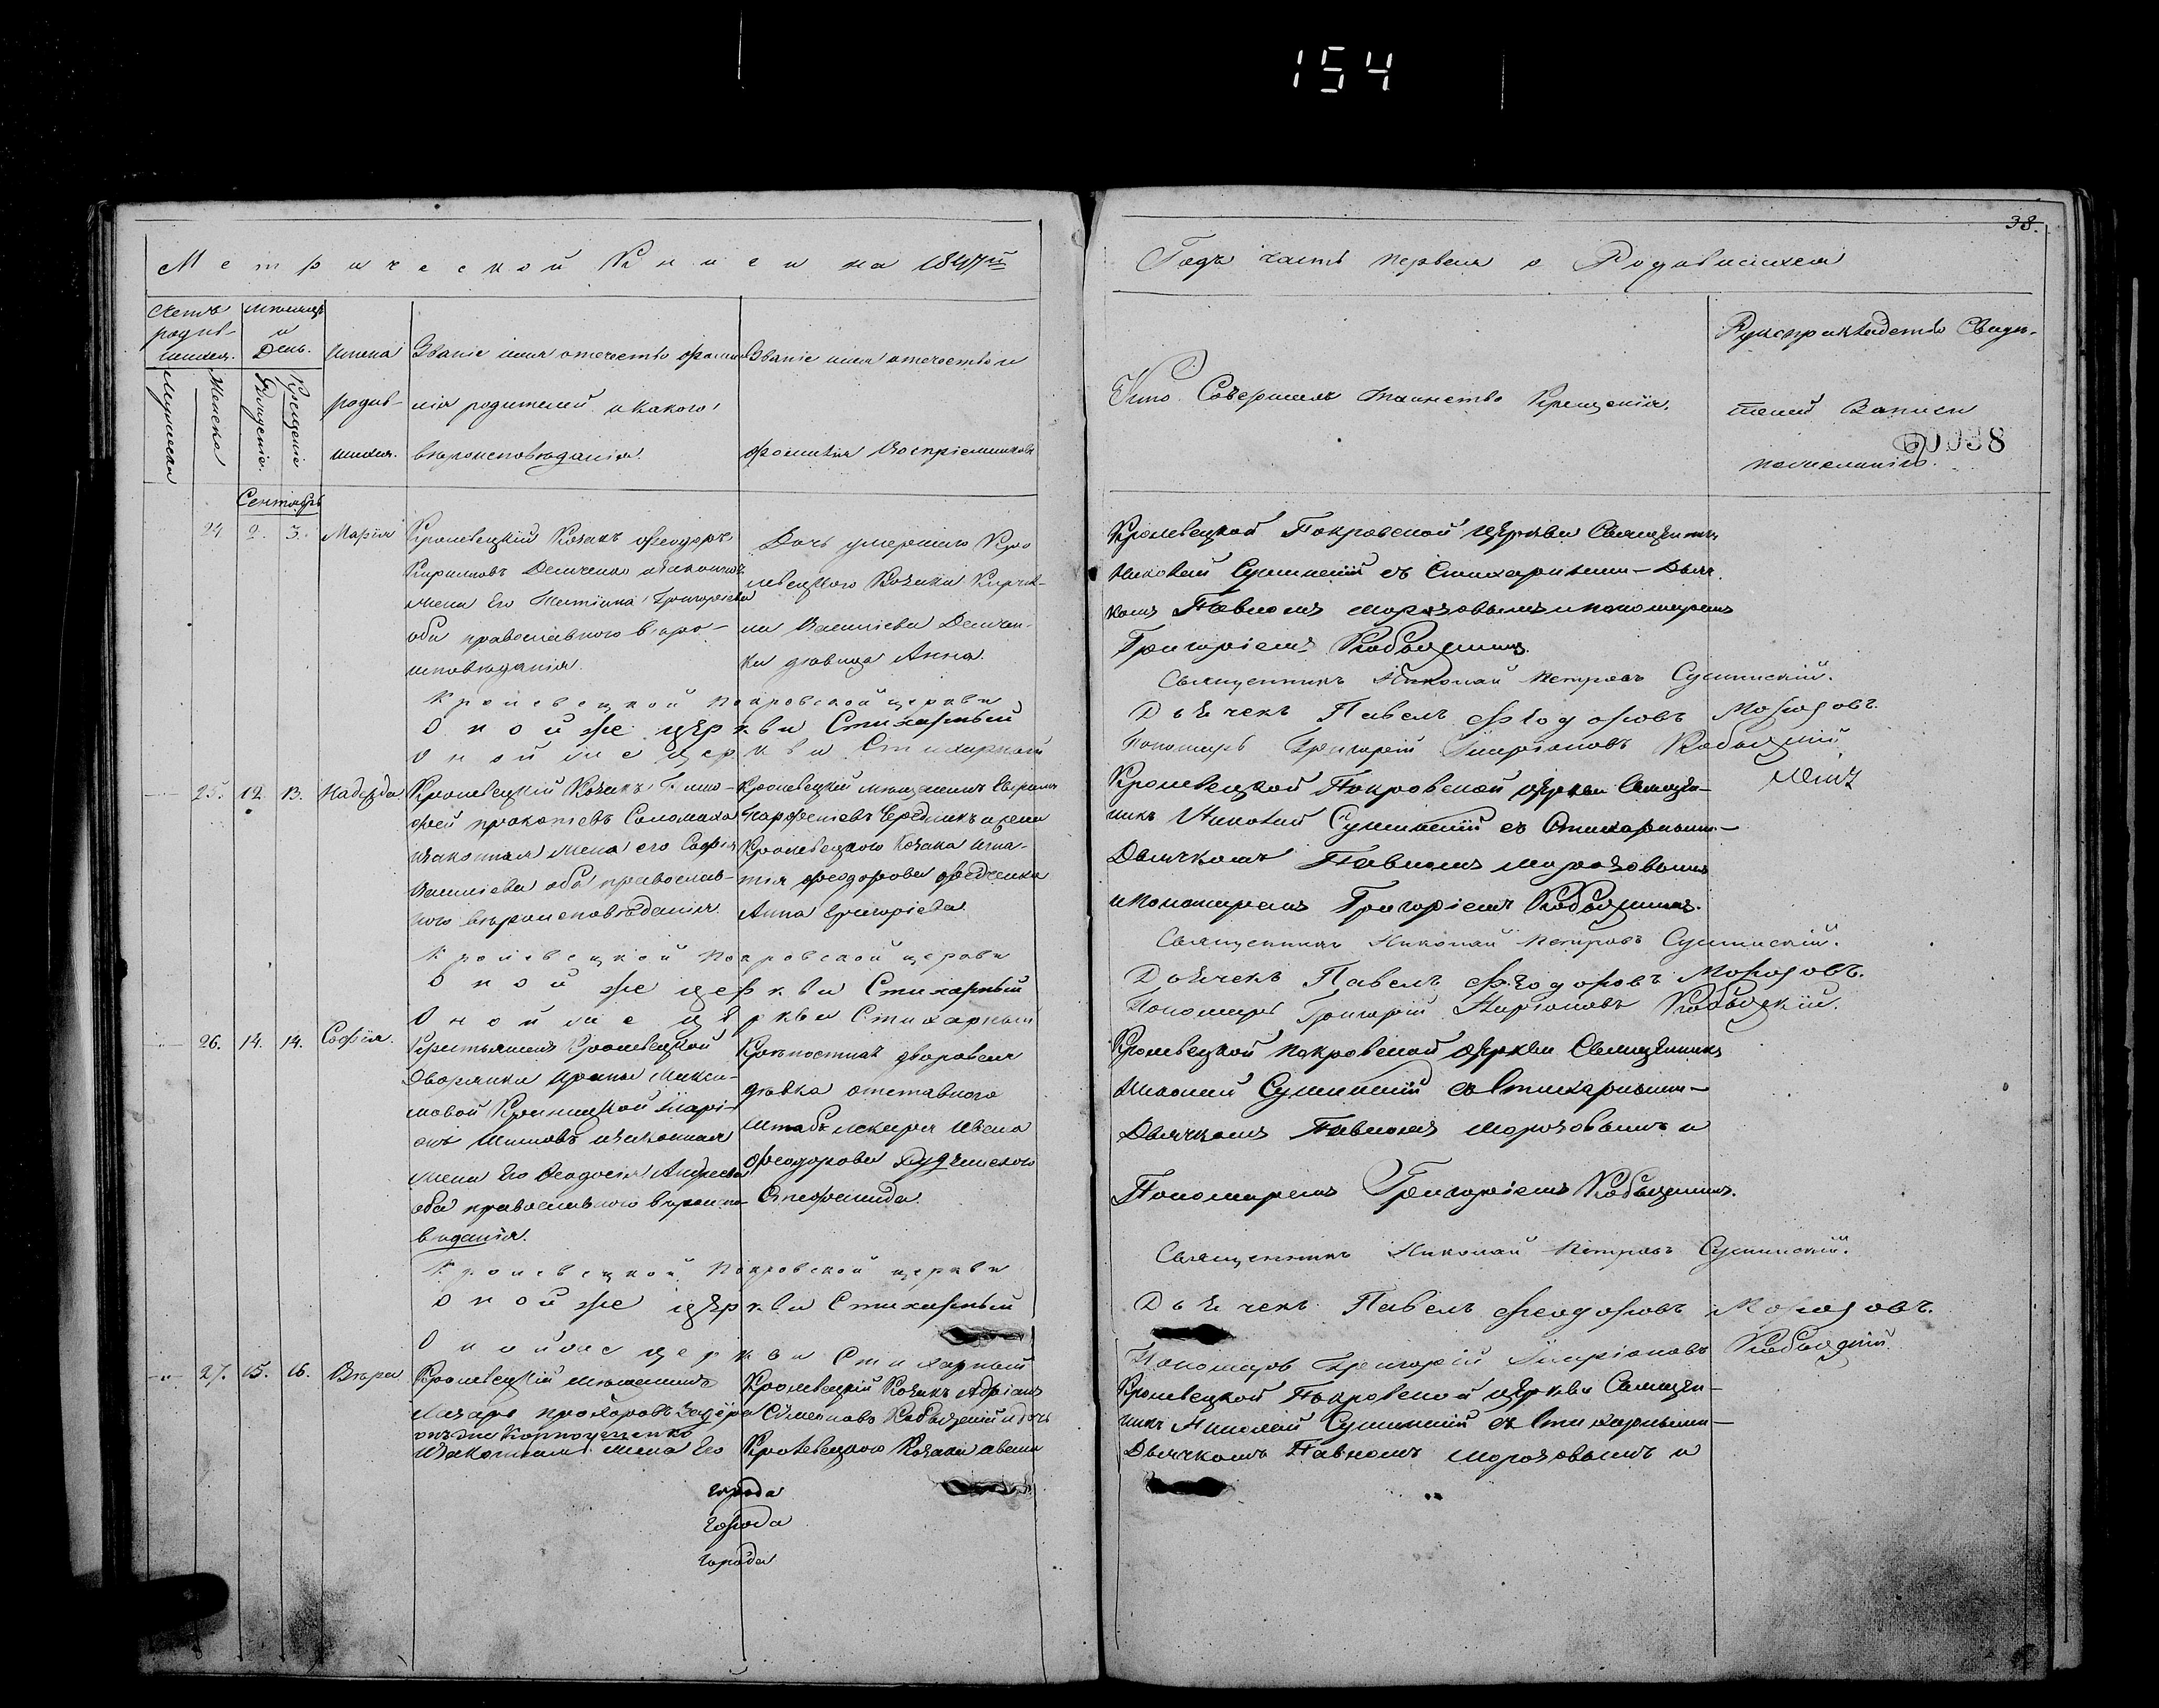 154
38.
Метрической Книги на 1847й
Годъ часть первая о Родившихся
Счетъ родив-шихся.
Мужеска
Женска
Мѣсяцъ и День.
Рожденія.
Крещенія
Имена родив-шихся.
Званіе имя отечество фами-
лія родителей и какого
вѣроисповѣданія.
Званіе имя отечество и
фамилія Воспріемниковъ
Кто Совершалъ таинство Крещенія.
Рукоприкладство Свидѣ-
телей Записи
по желанію.
00038
Сентябрь
24 2. 3. Марія
Кролевецкій Козакъ Феодоръ
Кириловъ Демченко и законная
жена Его Иустинна Григоріева
оба православного вѣро-
исповѣданія.
Дочь умершаго Кро
левецкого Козака Кирил-
ла Василіева Демчен-
ка дѣвица Анна.
Кролевецкой Покровской Церкви Священникъ
Николай Сушинскій съ Стихарнымъ Дьяч
комъ Павломъ Морозовымъ и пономаремъ
Григоріемъ Кобызскимъ.
Кролевецкой Покровской церкви Священникъ Николай Петровъ Сушинскій.
Оной же церкви Стихарный Дьячекъ Павелъ Феодоровъ Морозовъ.
Оной же церкви Стихарный Пономарь Григорій Иларіоновъ
25. 12. 13. Надежда.
Кролевецкій Козакъ Тимо-
фей Прокопіевъ Соломаха
и законная жена его Софія
Василіева оба православ-
ного вѣроисповѣданія.
Кролевецкій мѣщанинъ
Парфеніевъ Чередникъ и жена
Кролевецкого Козака Игна-
тія Феодорова Федченка
Анна Григоріева.
Кролевецкой Покровской Церкви Священ-
никъ Николай Сушинскій съ Стихарнымъ
Дьячкомъ Павломъ Морозовымъ
и Пономаремъ Григоріемъ
Кролевецкой Покровской церкви Священникъ Николай Петровъ Сушинскій.
Оной же церкви Стихарный Дьячекъ Павелъ Феодоровъ Морозовъ.
Оной же церкви Стихарный Пономарь Григорій Иларіоновъ
26. 14. 14. Софія.
Крестьянинъ Кролевецкой
Дворянки Ирины Макси-
мовой
жена Его Феодосія Андреева
оба православного вѣроиспо-
вѣданія.
Крѣпостная дворовая
дѣвка отставного
Штабъ лекаря Ивана
Феодорова
Стефанида.
Кролевецкой Покровской Церкви Священникъ
Николай Сушинскій съ Стихарнымъ
Дьячкомъ Павломъ Морозовымъ и
Пономаремъ Григоріемъ
Кролевецкой Покровской церкви Священникъ Николай Петровъ Сушинскій.
Оной же церкви Стихарный Дьячекъ Павелъ Феодоровъ Морозовъ.
Оной же церкви Стихарный Пономарь Григорій Иларіоновъ
27. 15. 16. Вѣра
Кролевецкій мѣщанинъ
Лазарь Прохоровъ
онъ же
и законная жена Его
Кролевецкій Козакъ Адріанъ
Симеоновъ и дочь
Кролевецкого Козака
Кролевецкой Покровской Церкви Священ-
никъ Николай Сушинскій съ Стихарнымъ
Дьячкомъ Павломъ Морозовымъ и
города
города
города